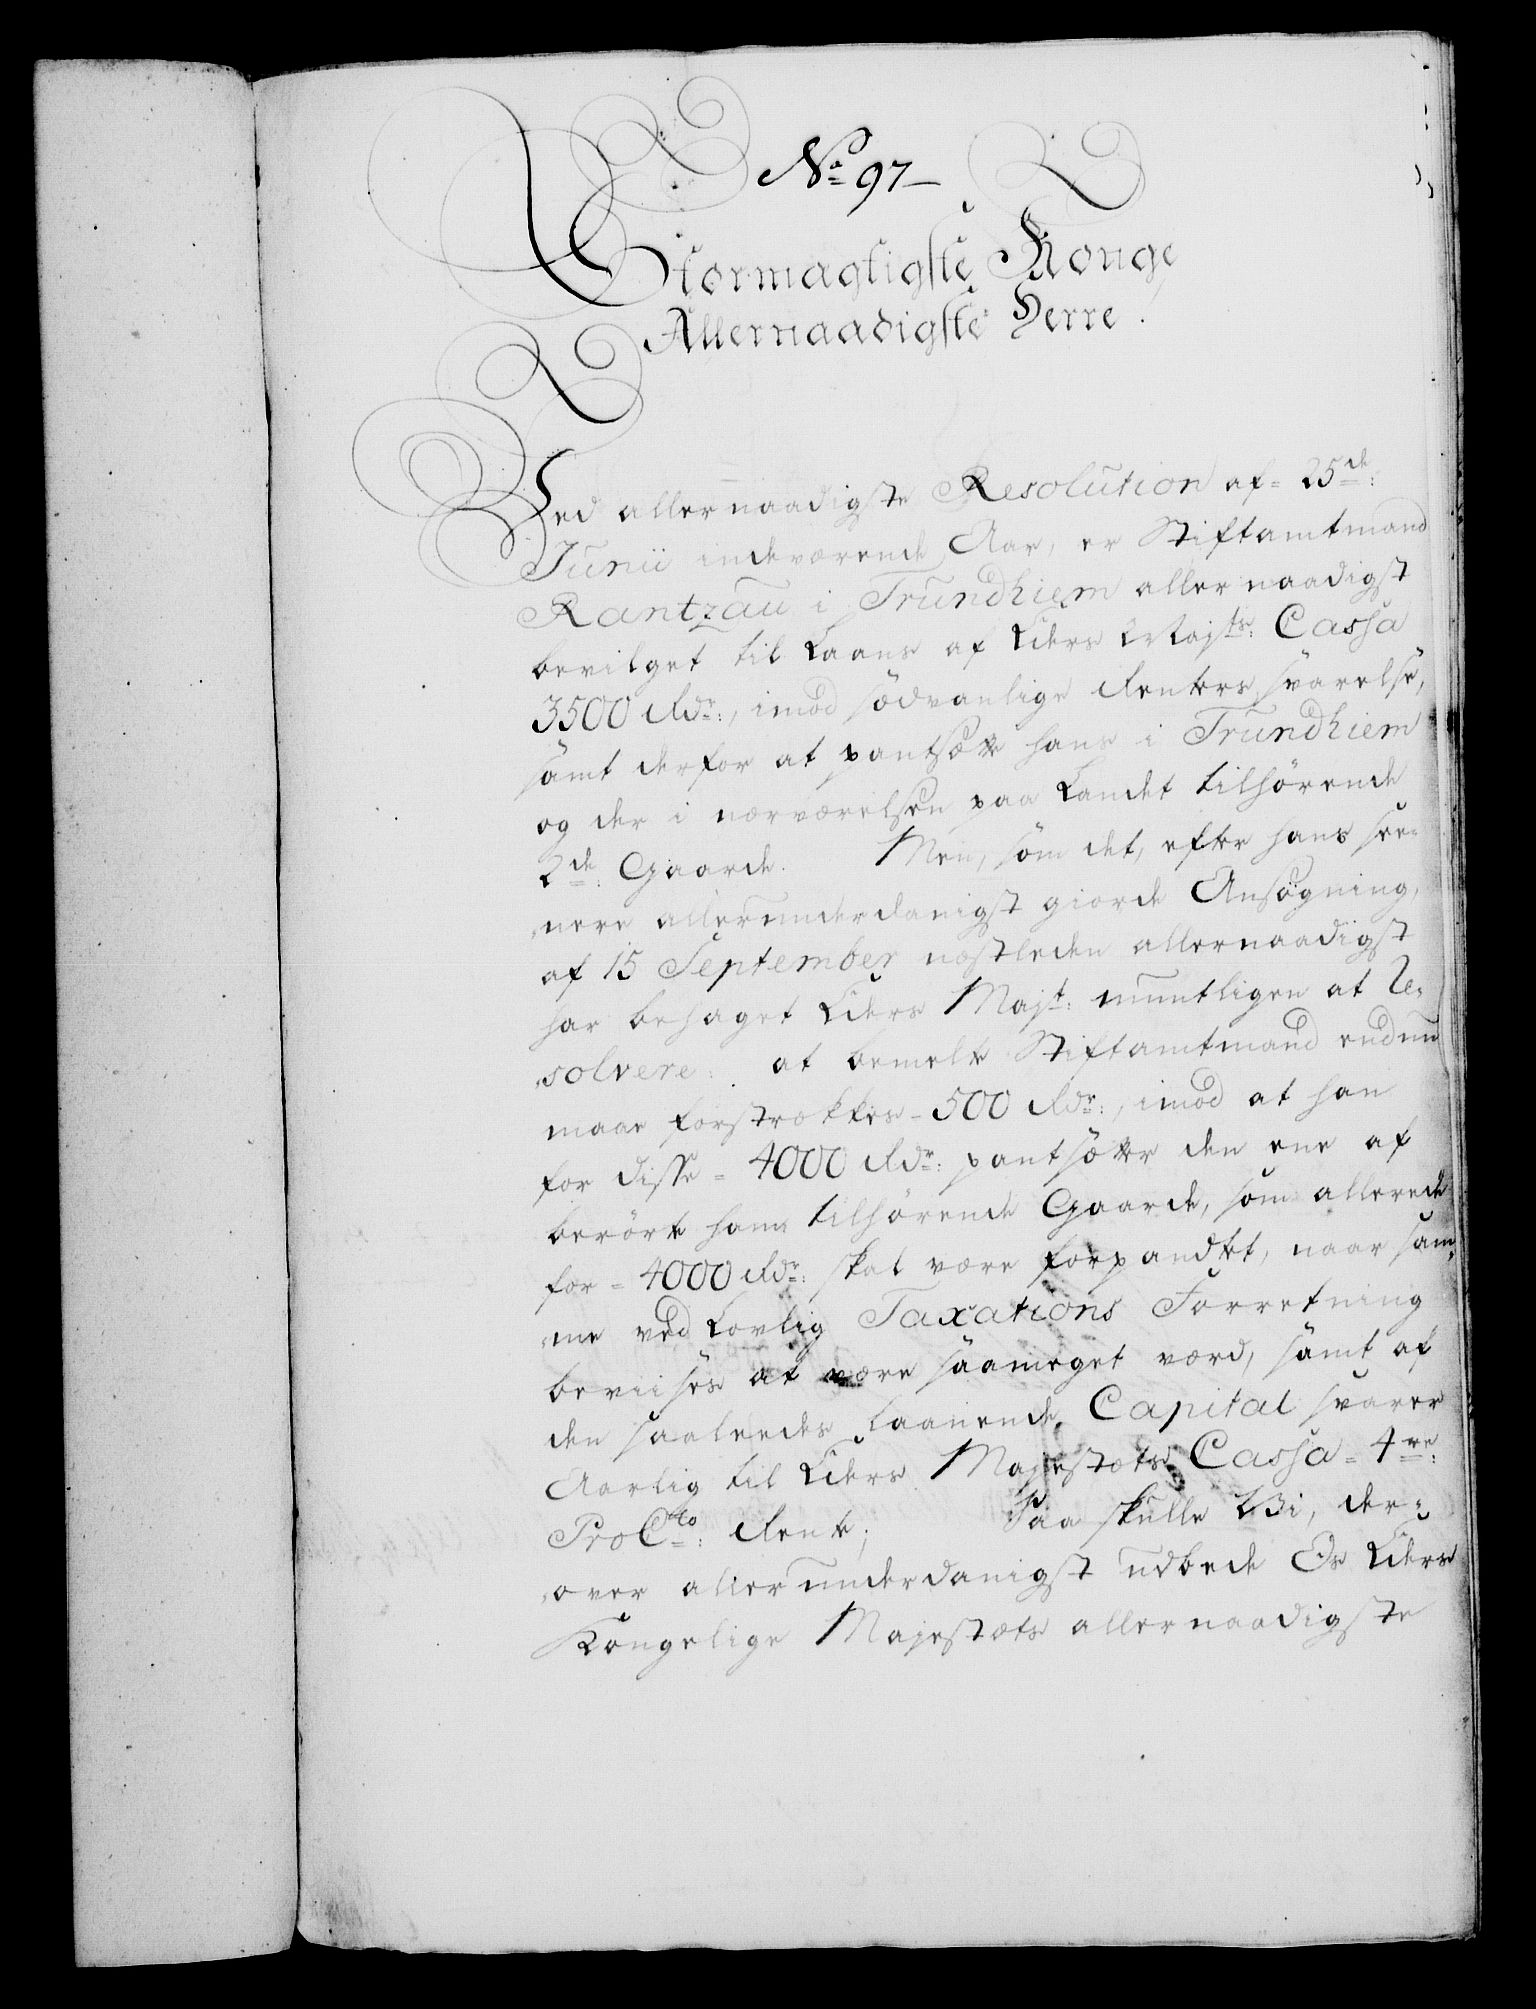 No 97
Stormægtigste Konge
Allernaadigste Herre.
Ved allernaadigste Resolution af 25de:
Junii indeværende Aar, er Stiftamtmand
Rantzau i Trundhiem allernaadigst
bevilget til Laans af Eders Majts: Cassa
3500 Rdr:, imod sædvanlige Renters svarelse,
samt derfor at pantsætte hans i Trundhiem
og der i nærværelsen paa Landet tilhørende
2de: Gaarde. Men, som det, efter hans see-
nere allerunderdanigst giorde Ansøgning,
af 15 September næstleden allernaadigst
har behaget Eders Majt: mundtligen at Re-
solvere: at bemelte Stiftamtmand endnu
maae forstrækkes 500 Rdr:, imod at han
for disse 4000 Rdr: pantsætter den ene af
berørte ham tilhørende Gaarde, som allerede
for 4000 Rdr: skal være forpandtet, naar sam-
me ved Lovlig Taxations Forretning
beviises at være saameget værd, samt af
den saaleedes laanende Capital svarer
Aarlig til Eders Majestæts Cassa 4re:
ProCto: Rente; Saa skulle Vi, der-
over allerunderdanigst udbede Os Eders
Kongelige Majestæts allernaadigste